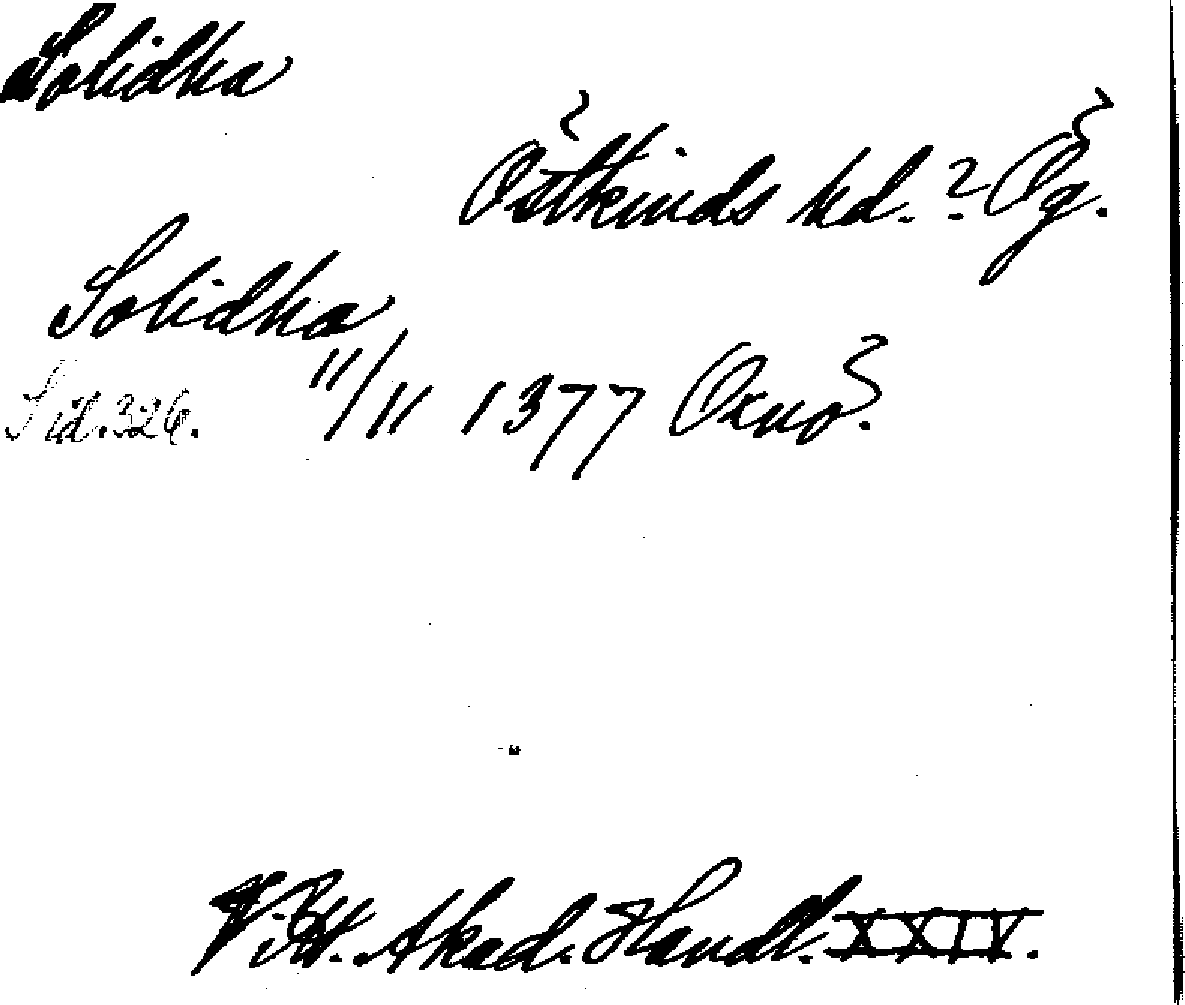 Solidha
Östkinds hd.? Ög.
Solidha
Sid. 326. 11/11 1377 Oxnö.
Vitt. Akad. Handl. XXIV.